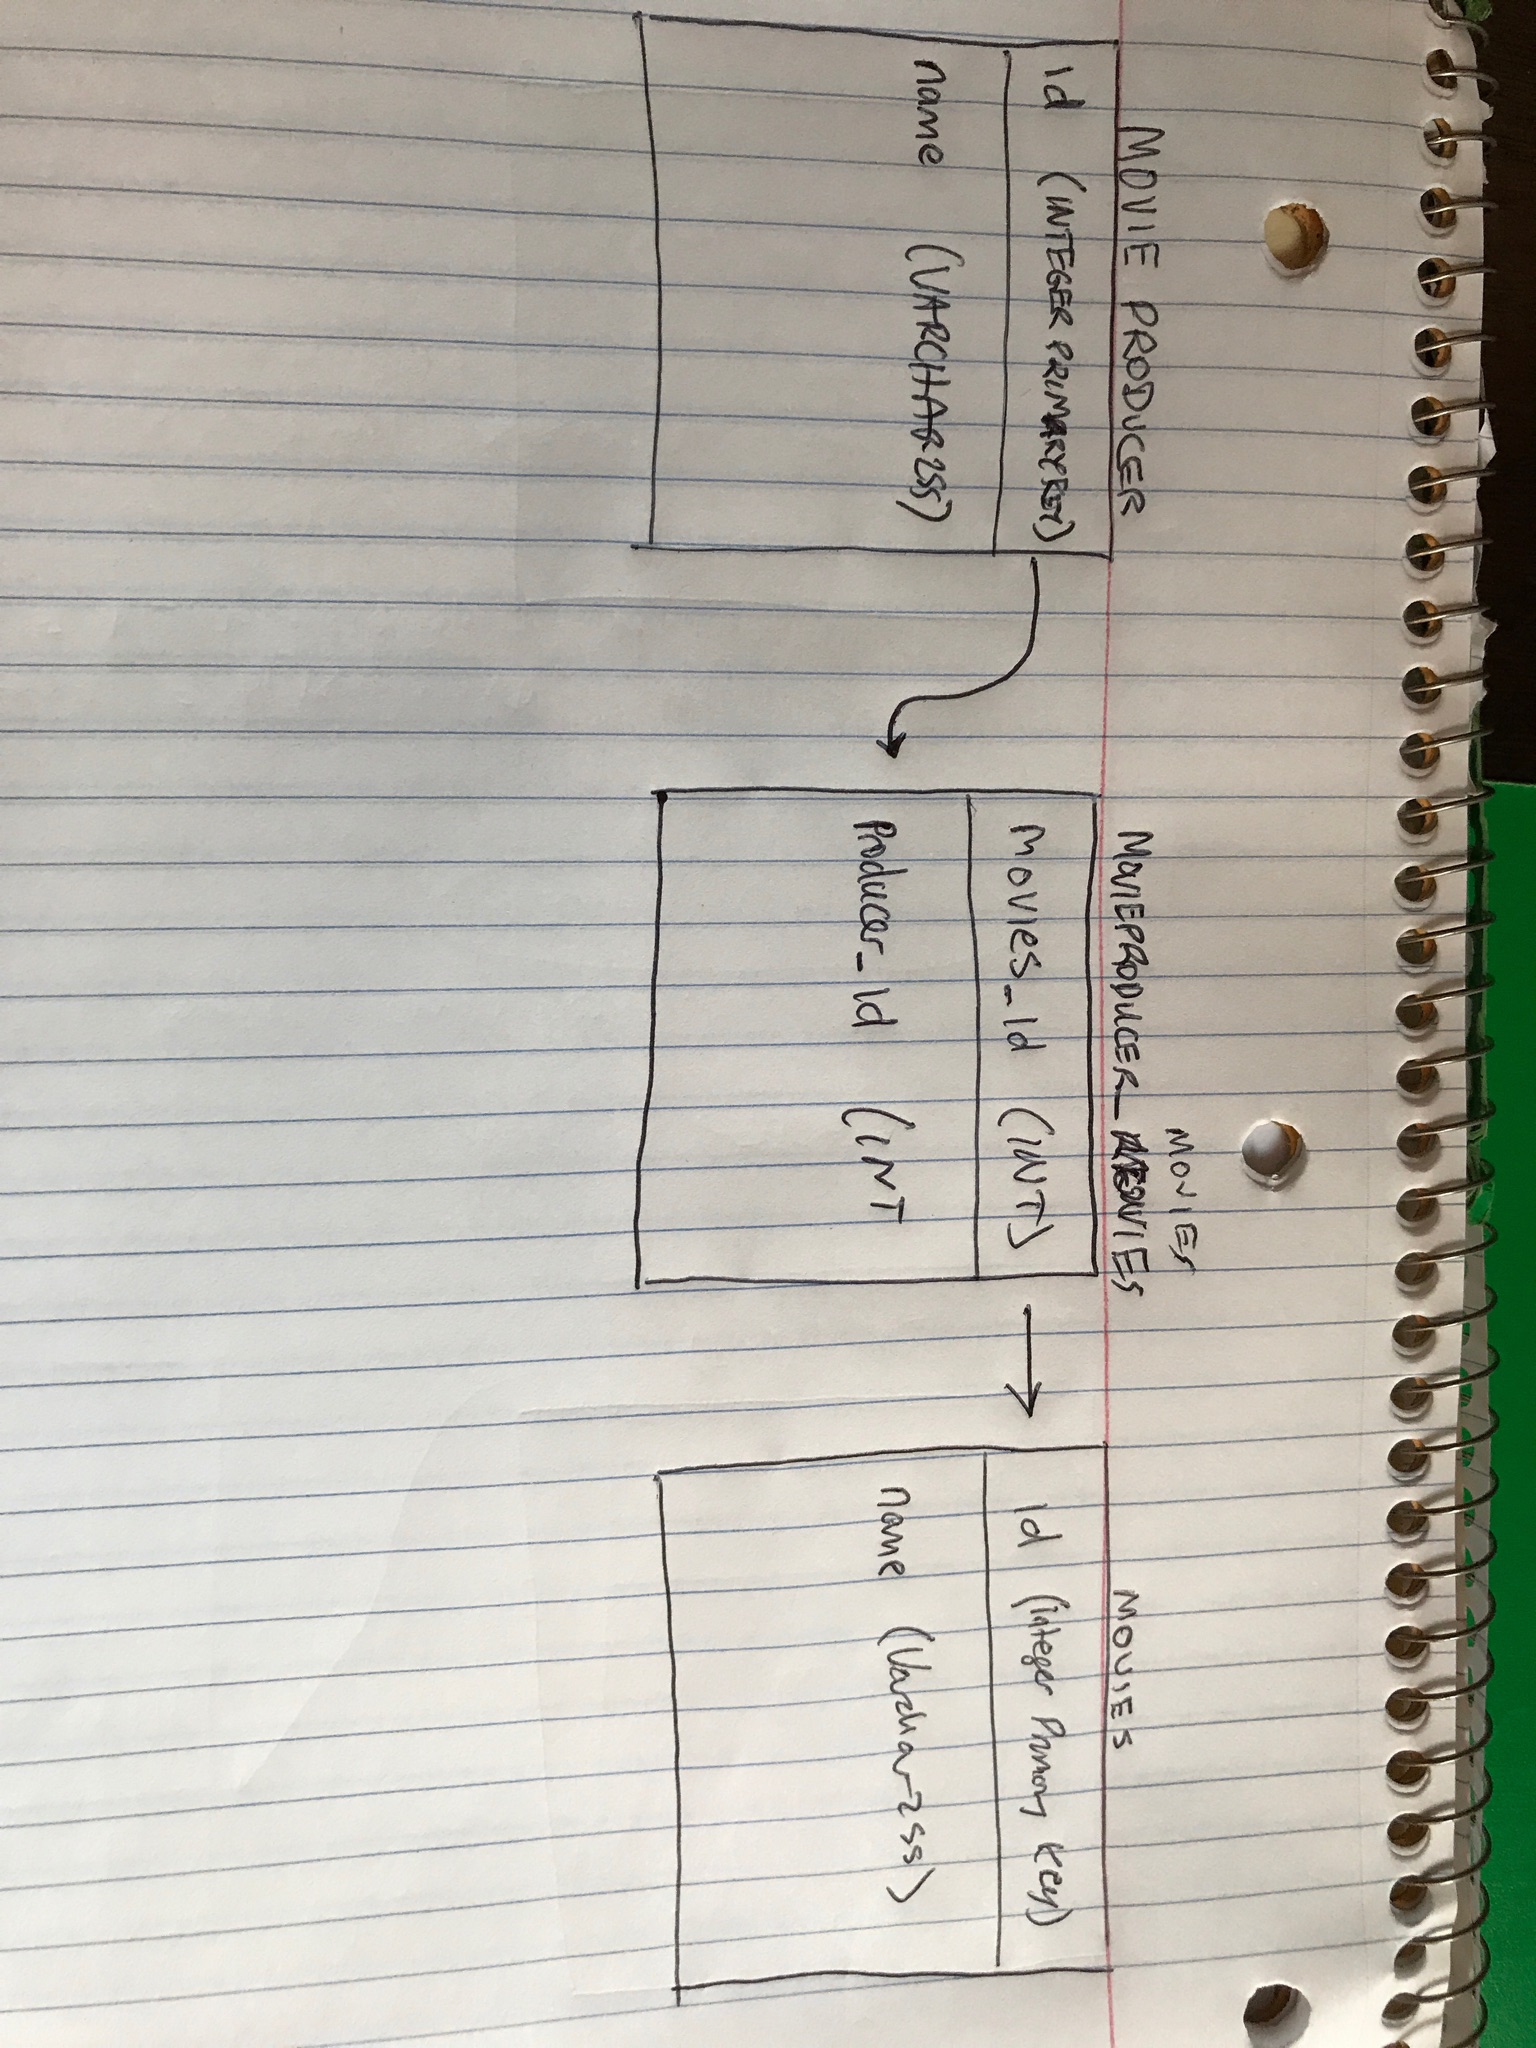 MOVIE PRODUCER
id (INTEGER PRIMARY KEY)
name (VARCHAR255)
MOVIES
MOVIEPRODUCER_MOVIES
Movies_id (INT)
Producer_id (INT
MOVIES
id (integer Primary Key)
name (Varchar255)